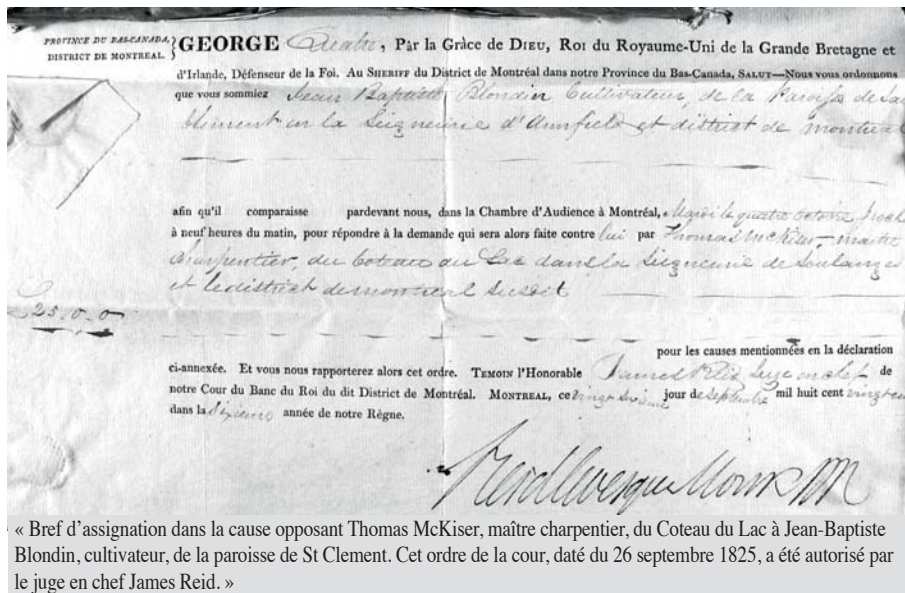 PROVINCE DU BAS-CANADA,
DISTRICT DE MONTREAL.
} GEORGE Quatre, Par la Grâce de DIEU, ROI du Royaume-Uni de la Grande Bretagne et
d'Irlande, Défenseur de la Foi. Au SHERIFF du District de Montréal dans notre Province du Bas-Canada, SALUT—Nous vous ordonnons
que vous sommiez Jean Baptiste Blondin Cultivateur, de la Paroisse de
en la Seigneurie d' et district de montreal
afin qu'il comparaisse pardevant nous, dans la Chambre d'Audience à Montréal, le quatre octobre
à neuf heures du matin, pour répondre à la demande qui sera alors faite contre lui par Thomas McKiser, maitre
charpentier, du Coteau du Lac dans la Seigneurie de Soulanges
et le district de montreal susdit
25.0.0
pour les causes mentionnées en la déclaration
ci-annexée. Et vous nous rapporterez alors cet ordre. TEMOIN l'Honorable James Reid Juge en chef de
notre Cour du Banc du Roi du dit District de Montréal. MONTREAL, ce vingt sixieme jour de septembre mil huit cent
dans la Sixieme année de notre Règne.
« Bref d'assignation dans la cause opposant Thomas McKiser, maître charpentier, du Coteau du Lac à Jean-Baptiste
Blondin, cultivateur, de la paroisse de St Clement. Cet ordre de la cour, daté du 26 septembre 1825, a été autorisé par
le juge en chef James Reid. »